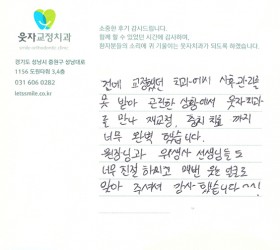 웃자교정치과
smile orthodontic clinic
경기도 성남시 중원구 성남대로
1156 도원타워 3,4층
031 606 0282
letssmile.co.kr
소중한 후기 감사드립니다.
함께 할 수 있었던 시간에 감사하며,
환자분들의 소리에 귀 기울이는 웃자치과가 되도록 하겠습니다.
전에 교정했던 치과에서 사후관리를
못 받아 곤란한 상황에서 웃자치과
를 만나 재교정, 충치치료 까지
너무 완벽 했습니다.
원장님과 위생사 선생님들도
너무 친절 하시고 매번 웃는 얼굴로
맞아 주셔서 감사 했습니다~^^!